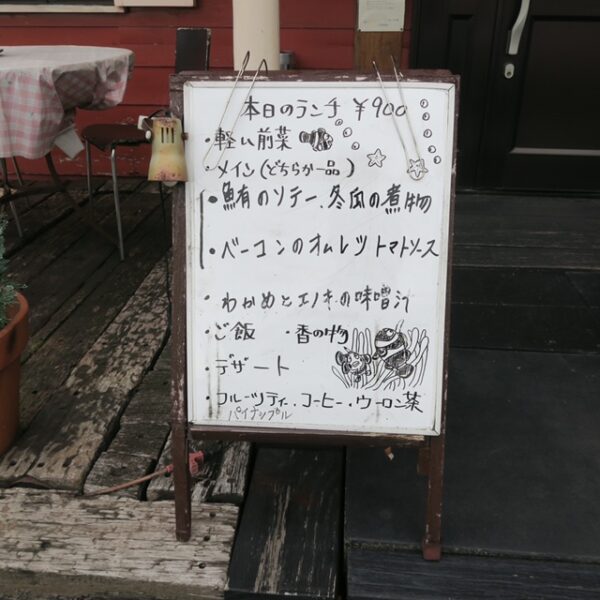 本日のランチ ¥900
・軽い前菜
・メイン(どちらか一品)
・鮪のソテー、冬瓜の煮物
・ベーコンのオムレツ トマトソース
・わかめとエノキの味噌汁
・ご飯 ・香の物
・デザート
・フルーツティ、コーヒー、ウーロン茶
パイナップル